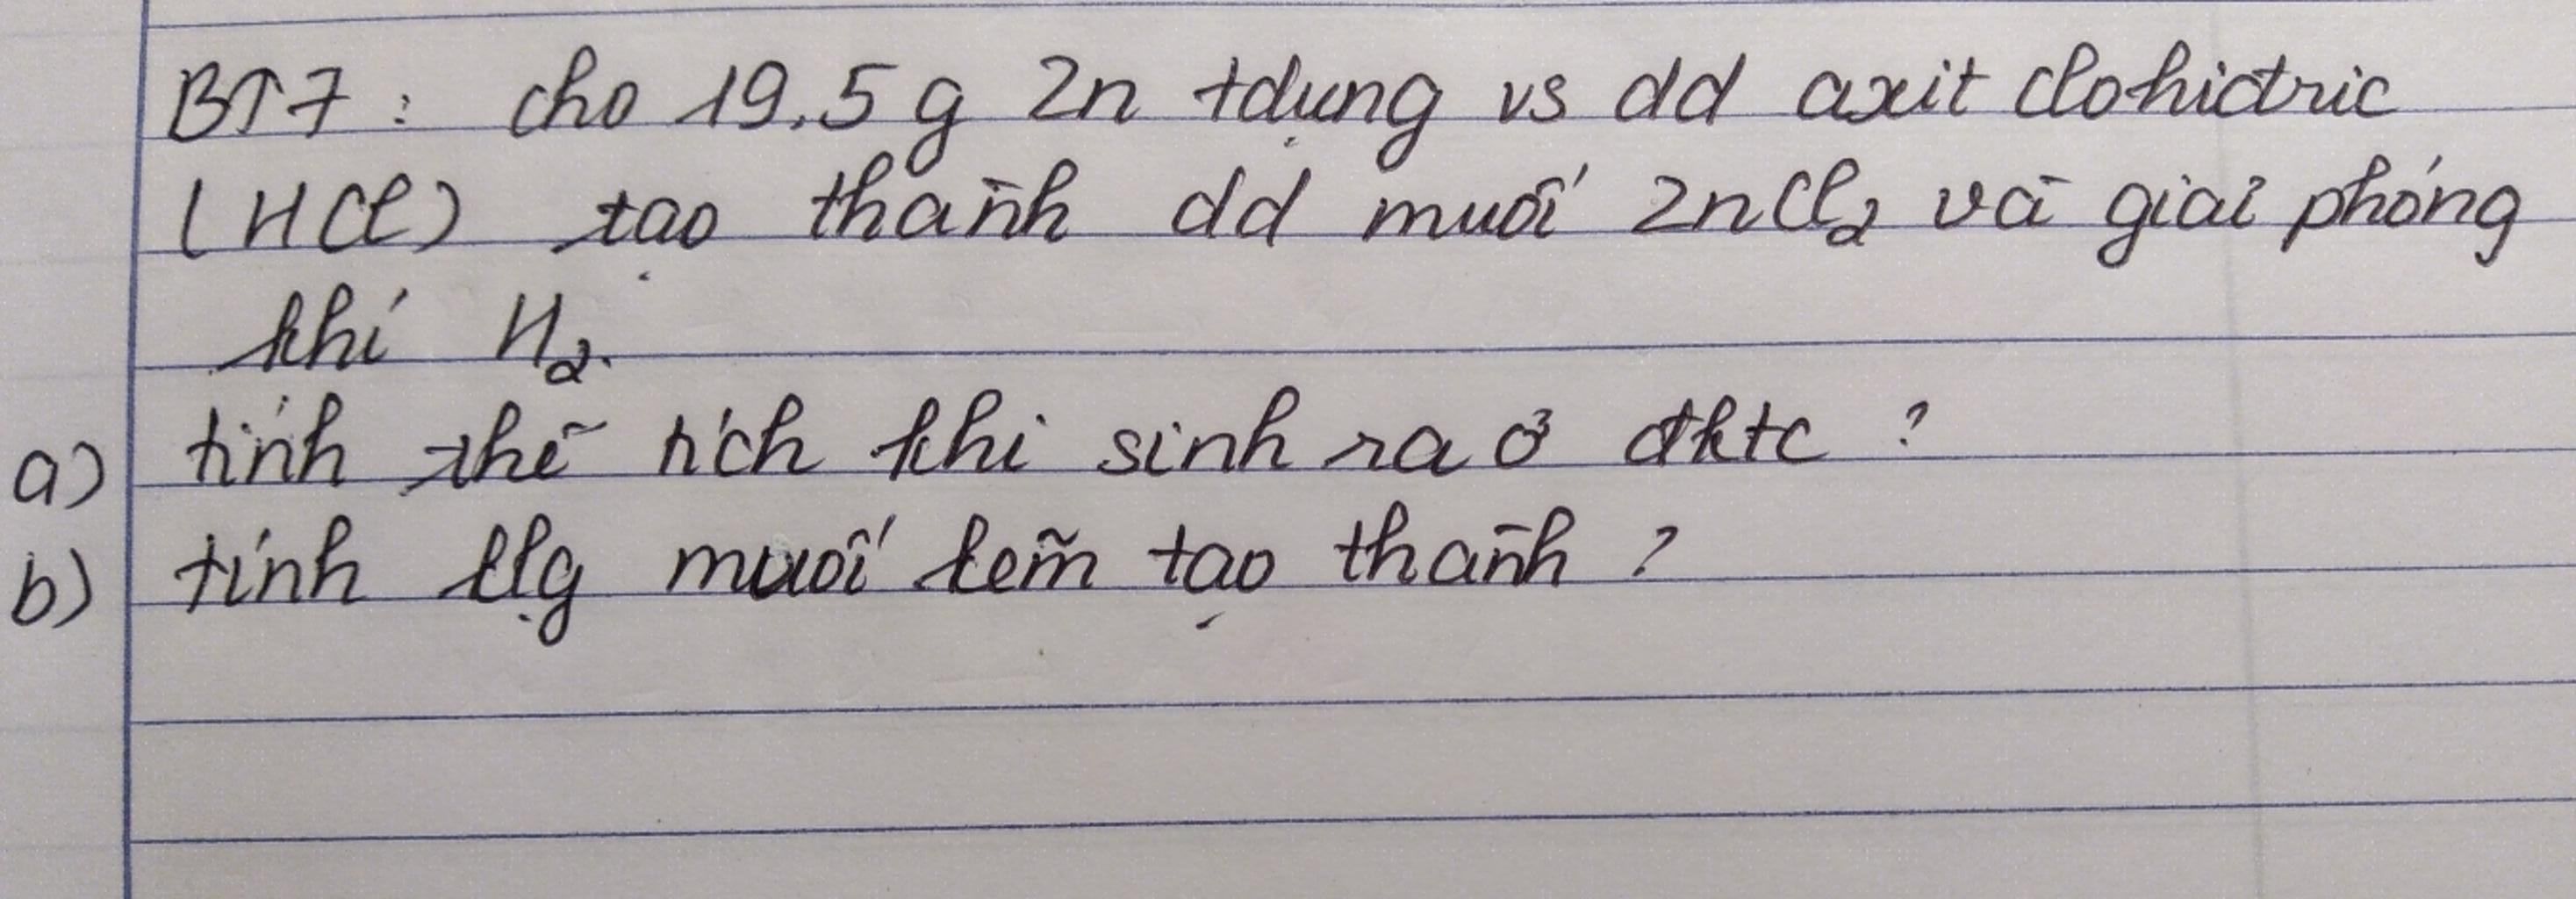 BT7: cho 19,5g Zn tdụng vs dd axit clohiđric
(HCl) tạo thành dd muối ZnCl₂ và giải phóng
khí H₂.
a) tính thể tích khí sinh ra ở đktc?
b) tính klg muối kẽm tạo thành?